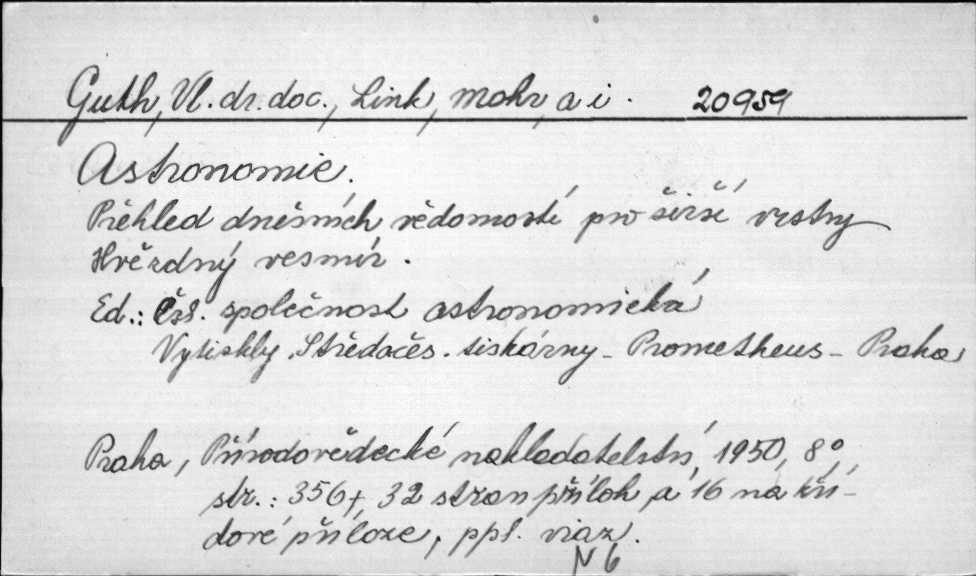 Guth, Vl. dr. doc., Link, Mohr, a i. 20959
Astronomie.
Přehled dnešních vědomostí pro širší vrstvy
Hvězdný vesmír.
Ed.: Čsl. společnost astronomická
Vytiskly Středočes. tiskárny - Prometheus - Praha
Praha, Přírodovědecké nakladatelství, 1950, 8°,
str.: 356+, 32 stran příloh a 16 na kří-
dové příloze, ppl. viaz.
N 6